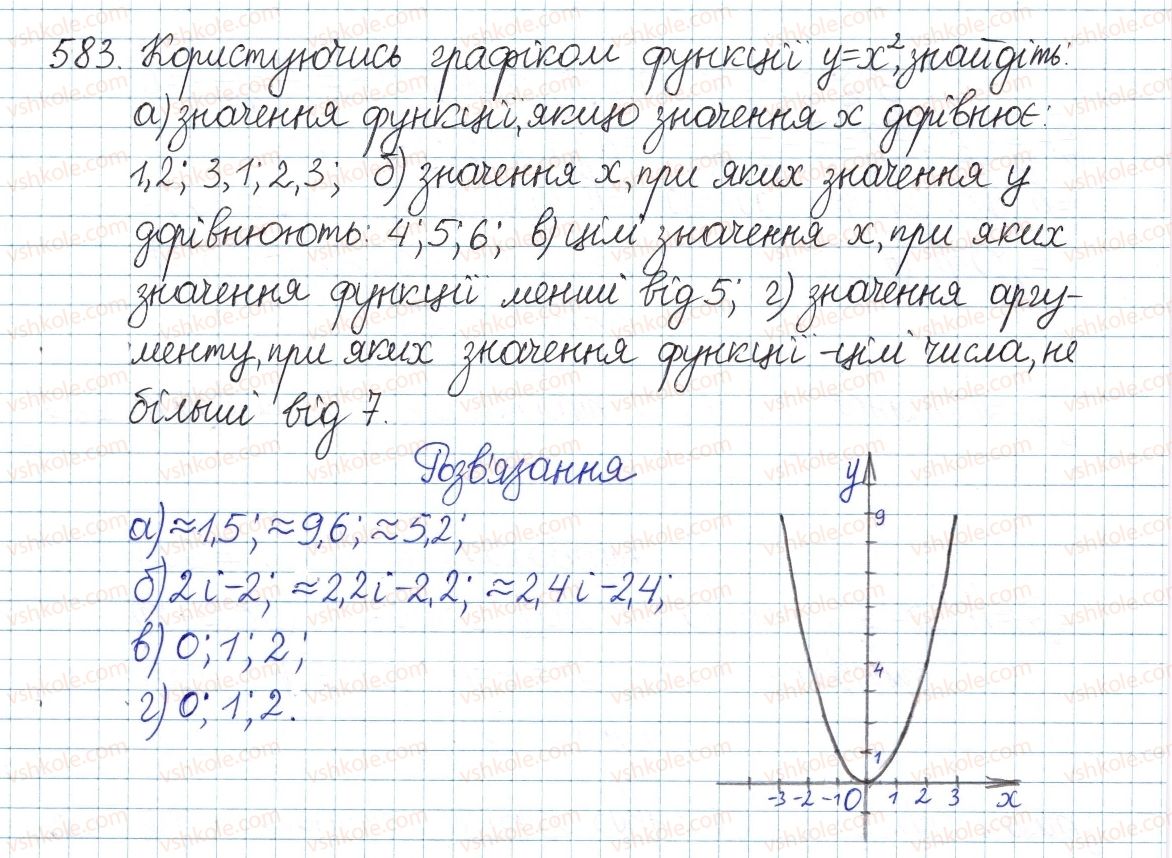 583. Користуючись графіком функції y=x², знайдіть:
а) значення функції, якщо значення x дорівнює:
1,2; 3,1; 2,3; б) значення x, при яких значення y
дорівнюють: 4; 5; 6; в) цілі значення x, при яких
значення функції менші від 5; г) значення аргу-
менту, при яких значення функції – цілі числа, не
більші від 7.
Розв'язання
а) ≈1,5; ≈9,6; ≈5,2;
б) 2 і -2; ≈2,2 і -2,2; ≈2,4 і -2,4;
в) 0; 1; 2;
г) 0; 1; 2.
y
9
4
1
-3 -2 -1 0 1 2 3 x
vshkole.com